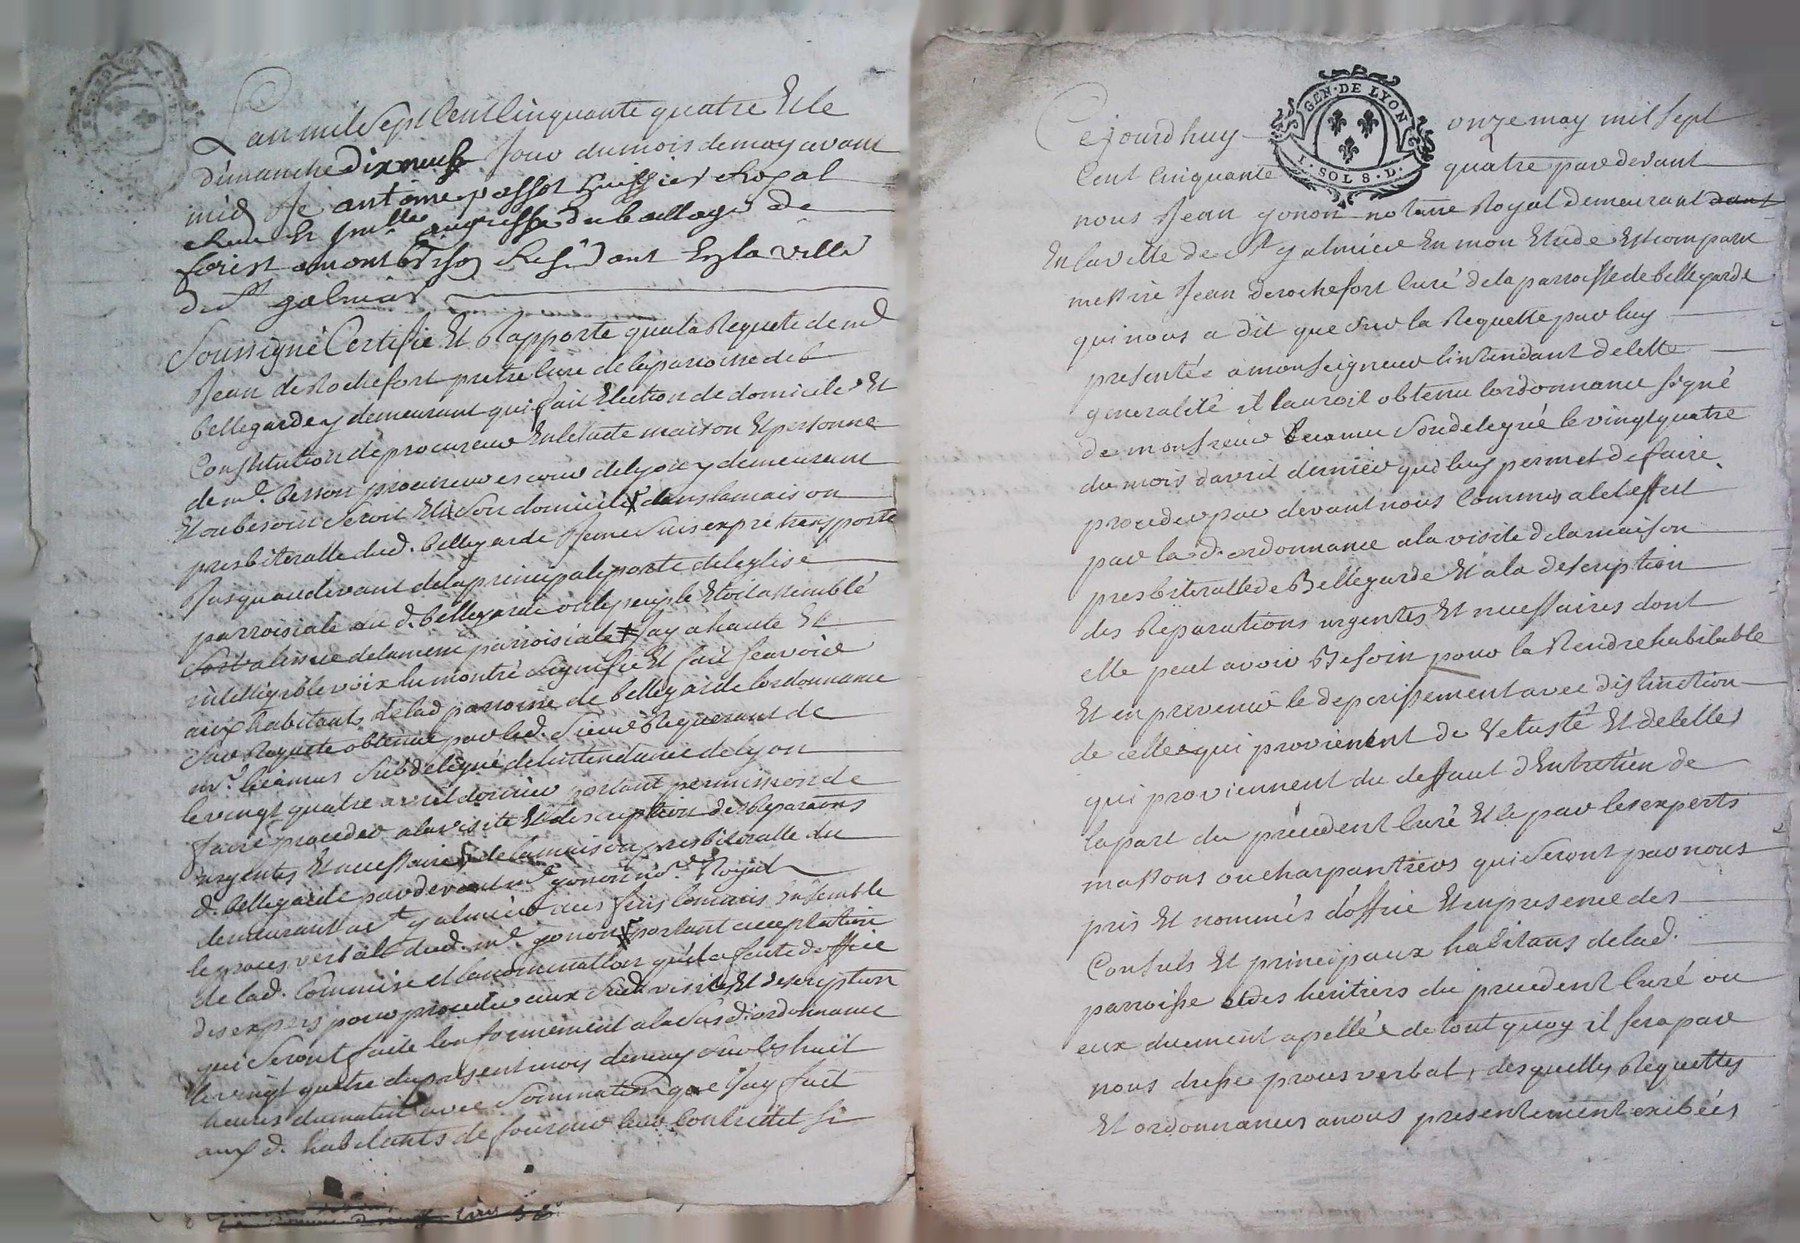 Lan mil Sept Cent Cinquante quatre Et le
dimanche dixneuf Jour du mois de may avant
midy Je antoine passot huissier Royal
forest a montbrison Residant En la ville
de St galmier
Soussigné Certifie Et Rapporte qua la Requete de mre
Jean de Rochefort pretre Curé de la paroisse de
bellegarde y demeurant qui fait Election de domicile Et
Constitution de procureur En letude maison Et personne
de me. besson procureur es cour de lyon y demeurant
Et ou besoin seroit Et en son domicile dans la maison
presbiteralle dud. bellegarde Je me suis expres transporté
Jusquau devant de la principale porte de leglise
parroisiale du d. bellegarde ou le peuple Etoit assemblé
Sort a lissue de la messe parroisiale Jay a haute Et
intelligible voix lu montré Signifié Et fait scavoir
aux habitants de lad parroisse de bellegarde lordonnance
Sur Requete obtenue par led. Sieur Requerant de
mr. Subdelegué de lintendance de lyon
le vingt quatre avril dernier portant permission de
faire proceder a la visite Et description des Reparaons
urgentes Et necessaires de la maison presbiteralle du
d. bellegarde par devant me gonon nore. Royal
demeurant a St galmier aux fins commis Ensemble
le proces verbal dud. me gonon portant acceptation
de lad. Commission Et la nomination quil a faite doffice
des expers pour proceder aux susd. visite Et description
qui seront faite Conformement a la susd. ordonnance
le vingt quatre du present mois de may sur les huit
heures du matin avec Sommation que Jay fait
aux d. habitants de
GEN·DE LYON
1·SOL 8·D·
Cejourdhuy onze may mil sept
Cent Cinquante quatre par devant
nous Jean gonon notaire Royal demeurant
En la ville de St galmier En mon Etude Est comparu
messire Jean de rochefort Curé de la parroisse de bellegarde
qui nous a dit que sur la Requette par luy
presentée a monseigneur lintendant de cette
generalité il lauroit obtenu lordonnance signé
de monsieur Subdelegué le vingt quatre
du mois davril dernier qui luy permet de faire
proceder par devant nous Commis a cet effet
par la d. ordonnance a la visite de la maison
presbiteralle de Bellegarde Et a la description
des Réparations urgentes Et necessaires dont
elle peut avoir Besoin pour la Rendre habitable
Et en prevenir le deperissement avec distinction
de celles qui provienent de vetusté Et de celles
qui proviennent du deffaut dEntretien de
la part du précedent Curé Et ce par les experts
massons ou charpantiers qui seront par nous
pris Et nommés doffice Et en presence des
Consuls Et principaux habitans de lad.
parroisse Et des heritiers du precedent Curé ou
eux duement apellés de tout quoy il sera par
nous dressé proces verbal, desquelles Requettes
Et ordonnances a nous presentement exibées